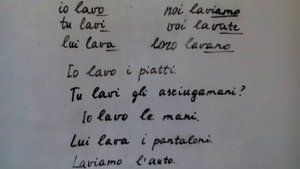 io lavo noi laviamo
tu lavi voi lavate
lui lava loro lavano
Io lavo i piatti.
Tu lavi gli asciugamani?
Io lavo le mani.
Lui lava i pantaloni.
Laviamo l'auto.